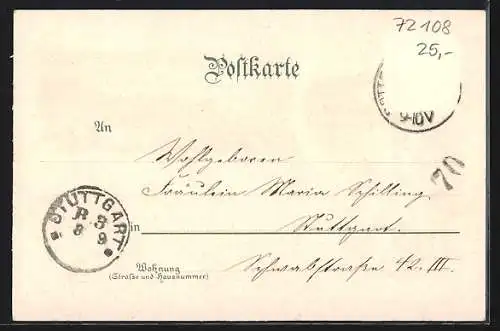 72108
25,-
Postkarte
9-10V
An
Wohlgeboren
Fräulein Maria Schilling
70
STUTTGART
B 3
8 9
in Stuttgart.
Wohnung
(Straße und Hausnummer)
Schwabstraße 42. III.